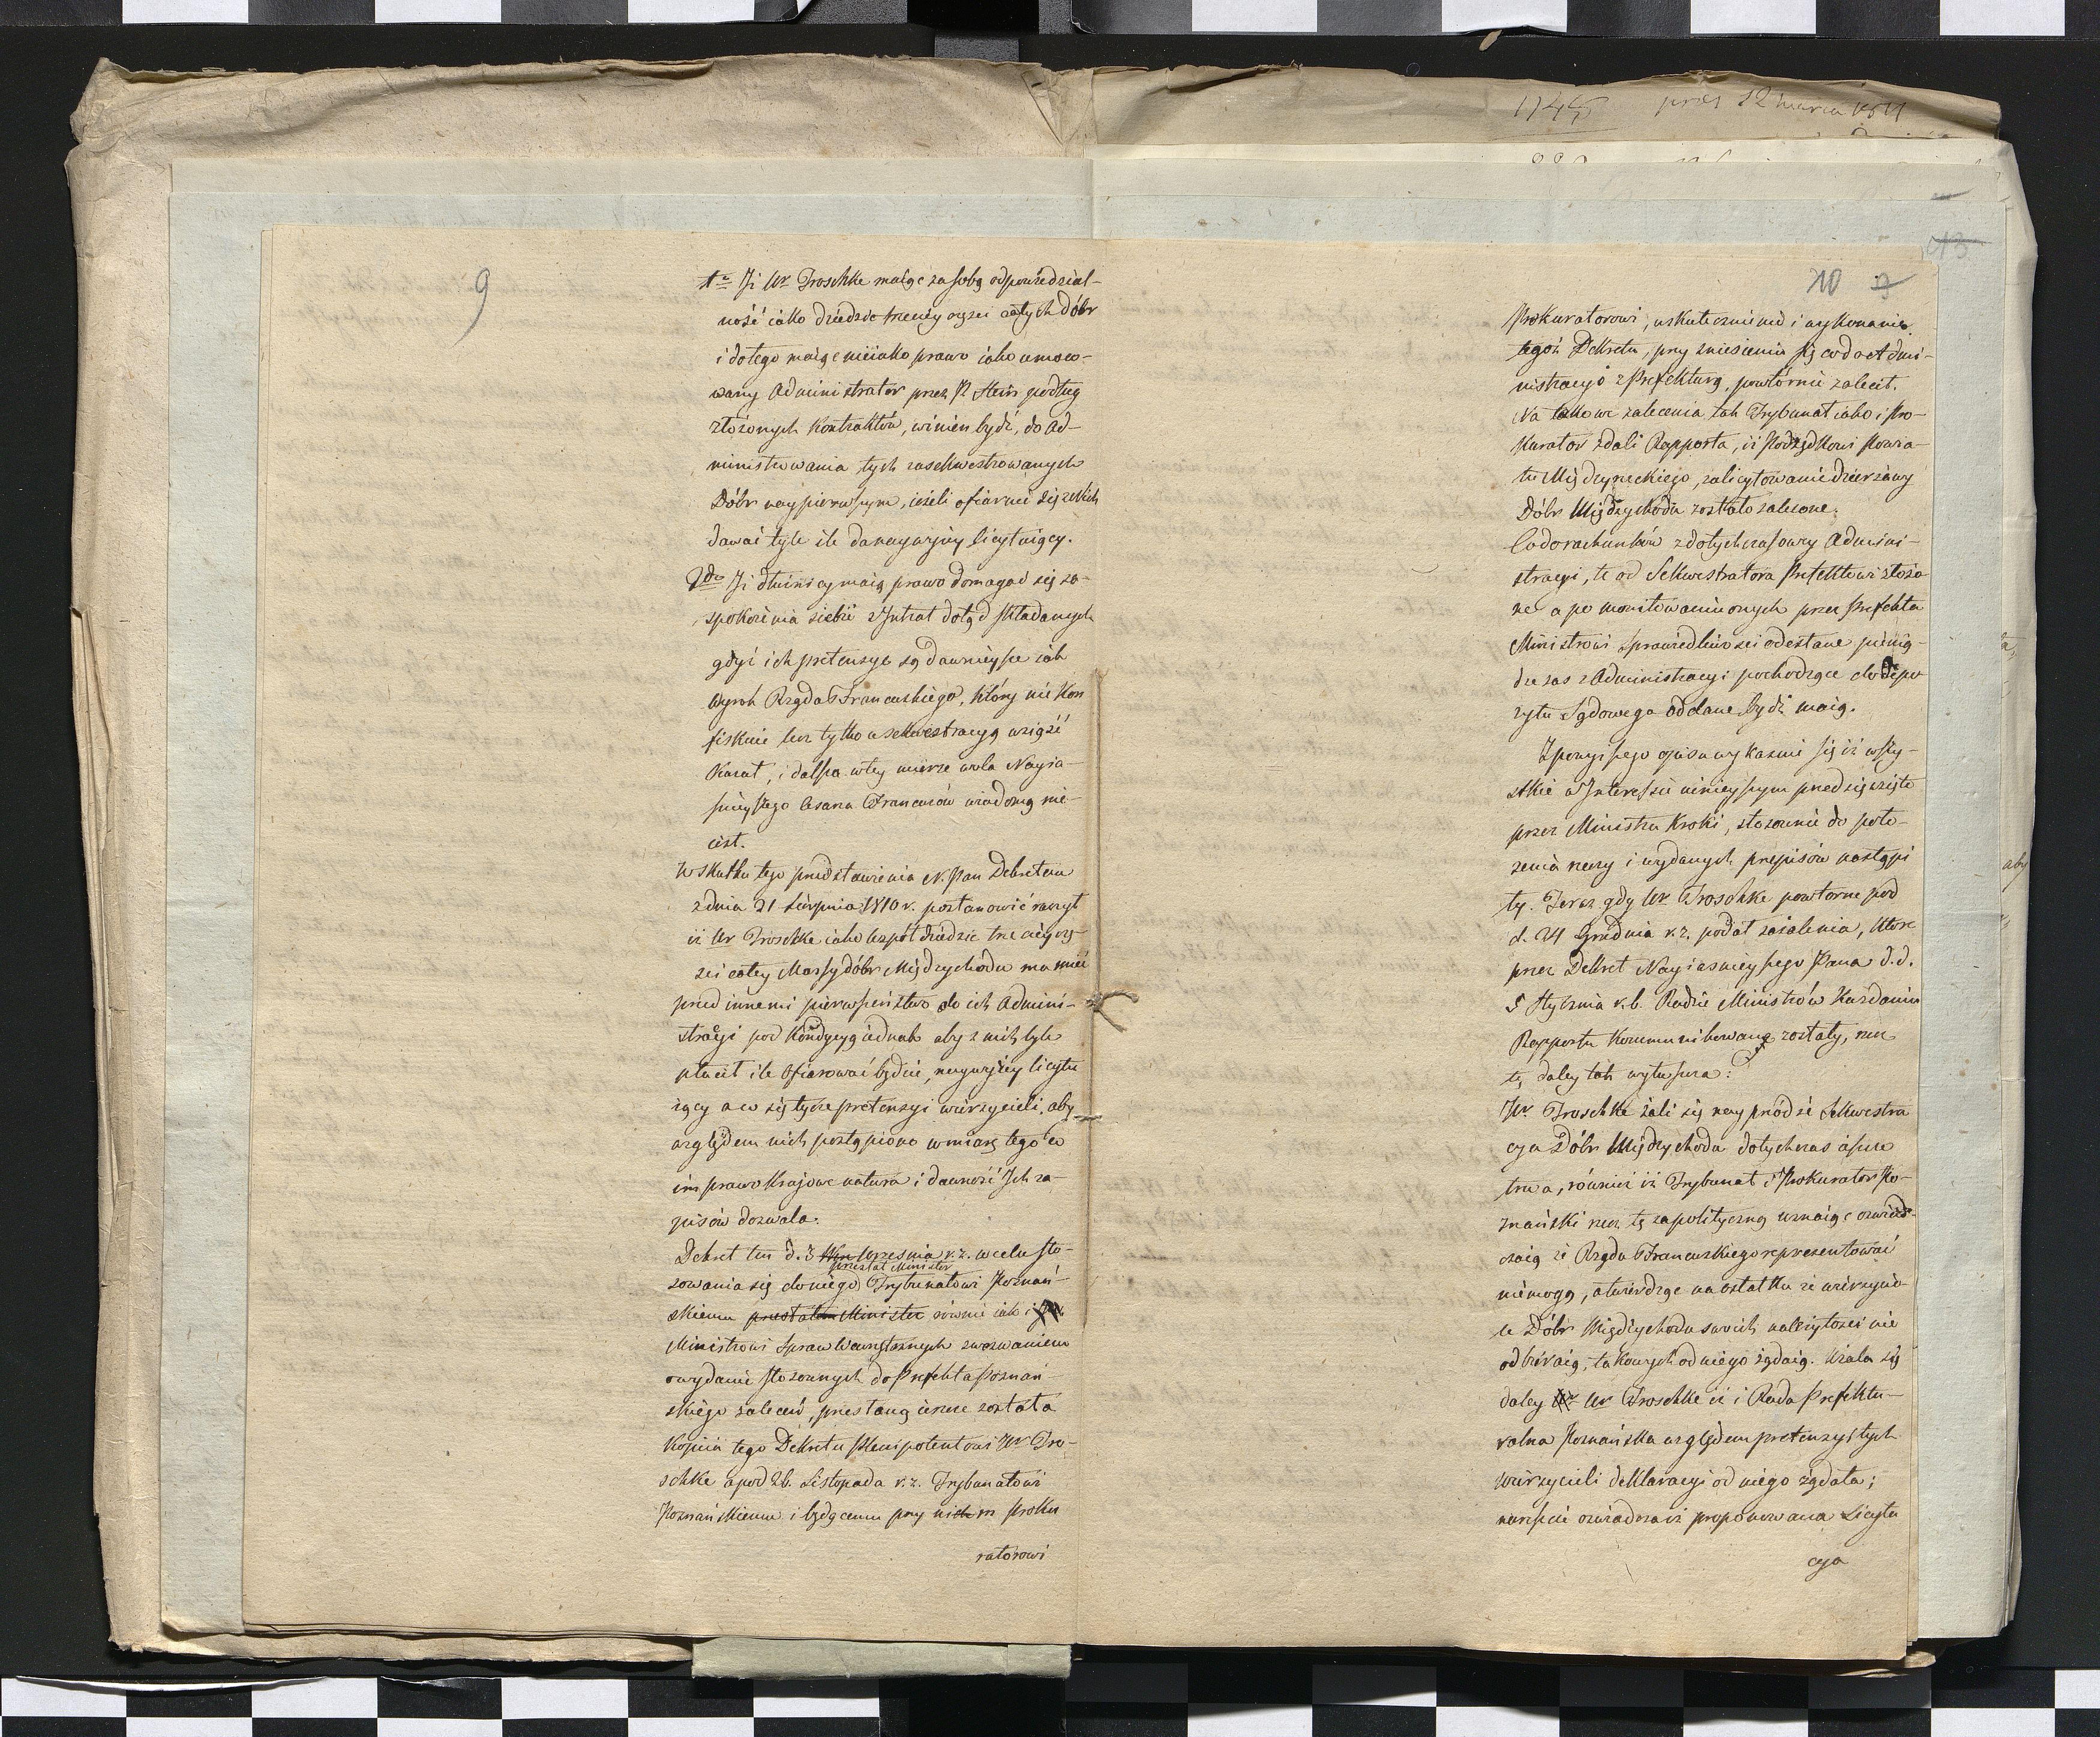 1745 prez 12 marca 1811
9
1o Iż Ur Troschke maiąc za sobą odpowiedzial-
ność iako dziedzic trzeciey części całych dóbr
i do tego maiąc nieiako prawo iako umoco-
wany Administrator przez P. Hein podług
złożonych kontraktów, winien bydź, do Ad-
ministrowania tych zasekwestrowanych
Dóbr naypierwszym, ieżeli ofiaruie się z nich
dawać tyle ile da naywyżey licytuiący.
2do Iż dłużnicy maią prawo domagać się za-
spokoienia siebie z Intrat dotąd składanych
gdyż ich pretensye są dawnieysze iak
wyrok Rządu Francuskiego, który nie kon
fiskuie lecz tylko w sekwestracyą wziąść
kazał, i dalsza w tey mierze wola Nayia-
śnieyszego Cesarza Francuzów wiadomą nie
iest.
W skutku tego przedstawienia N. Pan Dekretem
z dnia 21 Sierpnia 1810 r. postanowić raczył
iż Ur Troschke iako współdziedzic trzeciey czę-
ści całey Massy dóbr Międzychodu ma mieć
przed innemi pierwszeństwo do ich Admini-
stracyi pod kondycyą iednak aby z nich tyle
płacił ile ofiarować będzie, naywyżey licytu
iący a co się tycze pretensyi wierzycieli, aby
względem nich postąpiono w miarę tego co
im prawo kraiowe natura i dawność Ich za-
pisów dozwala.
Dekret ten d. 3 Września r. z. w celu sto-
przesłał Minister
sowania się do niego Trybunałowi Poznań-
skiemu przesłał Minister równie iak i
Ministrowi Spraw Wewnętrznych z wezwaniem
o wydanie stosownych do Prefekta Poznań-
skiego zaleceń, przesłaną ieszcze została
kopiia tego Dekretu Plenipotentowi Ur Tro-
schke a pod 26. Listopada r. z. Trybunałowi
Poznańskiemu i będącemu przy nim Proku
ratorowi
10
Prokuratorowi, uskutecznienie i wykonanie
tegoż Dekretu, przy zniesieniu się co do Admi-
nistracyi z Prefekturą, powtórnie zalecił.
Na takowe zalecenia tak Trybunał iako i Pro-
kurator zdali Rapporta, iż Podsędkowi Powia-
tu Międzyrzeckiego, zalicytowanie dzierżawy
Dóbr Międzychodu zostało zalecone.
Co do rachunków z dotychczasowey Admini-
stracyi, te od Sekwestratora Prefektowi złożo
ne a po monitowaniu onych przez Prefekta
Ministrowi Sprawiedliwości odesłane pienią-
dze zas z Administracyi pochodzące do Depo
zytu Sądowego oddane bydź maią.
Z powyższego opisu wykazuie się iż wszy-
stkie w Interessie ninieyszym przedsięwzięte
przez Ministra kroki, stosownie do poło-
żenia rzeczy i wydanych przepisów nastąpi
ły. Teraz gdy Ur Troschke powtorne pod
d. 24 Grudnia r. z. podał zażalenia, które
przez Dekret Nayiasnieyszego Pana d. d.
5 Stycznia r. b. Radzie Ministrów ku zdaniu
Rapportu kommunikowane zostały, rzecz
tę daley tak wytusza:
Ur Troschke żali się nayprzód że Sekwestra
cya Dóbr Międzychodu dotychczas ieszcze
trwa, również iż Trybunał i Prokurator Po-
znański rzecz tę za polityczną uznaiąc oswiad-
czaią że Rządu Francuskiego reprezentować
niemogą, a twierdząc na ostatku że wierzycie-
le Dóbr Międzychodu swoich należytości nie
odbieraią, takowych od niego żądaią. Użala się
daley Ur Troschke iż i Rada Prefektu-
ralna Poznańska względem pretensyi tych
wierzycieli deklaracyi od niego żądała;
nareszcie oswiadcza iż proponowana Licyta
cya